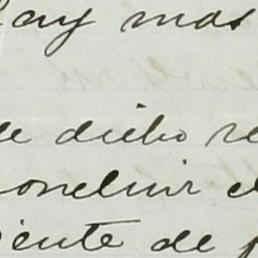 ay mas
de dicho re
concluir e
iente de p